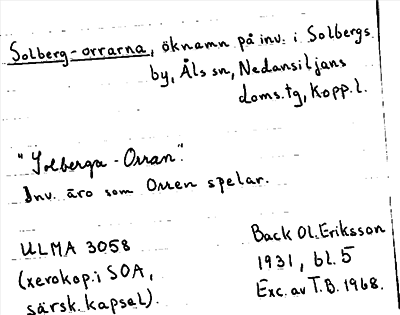 Solberg-orrarna, öknamn på inv. i Solbergs
by, Åls sn, Nedansiljans
doms.tg, Kopp.l.
"Solberga-Orran".
Inv. äro som Orren spelar.
ULMA 3058
(xerokop. i SOA,
särsk. kapsel).
Back Ol. Eriksson
1931, bl. 5
Exc. av T.B. 1968.